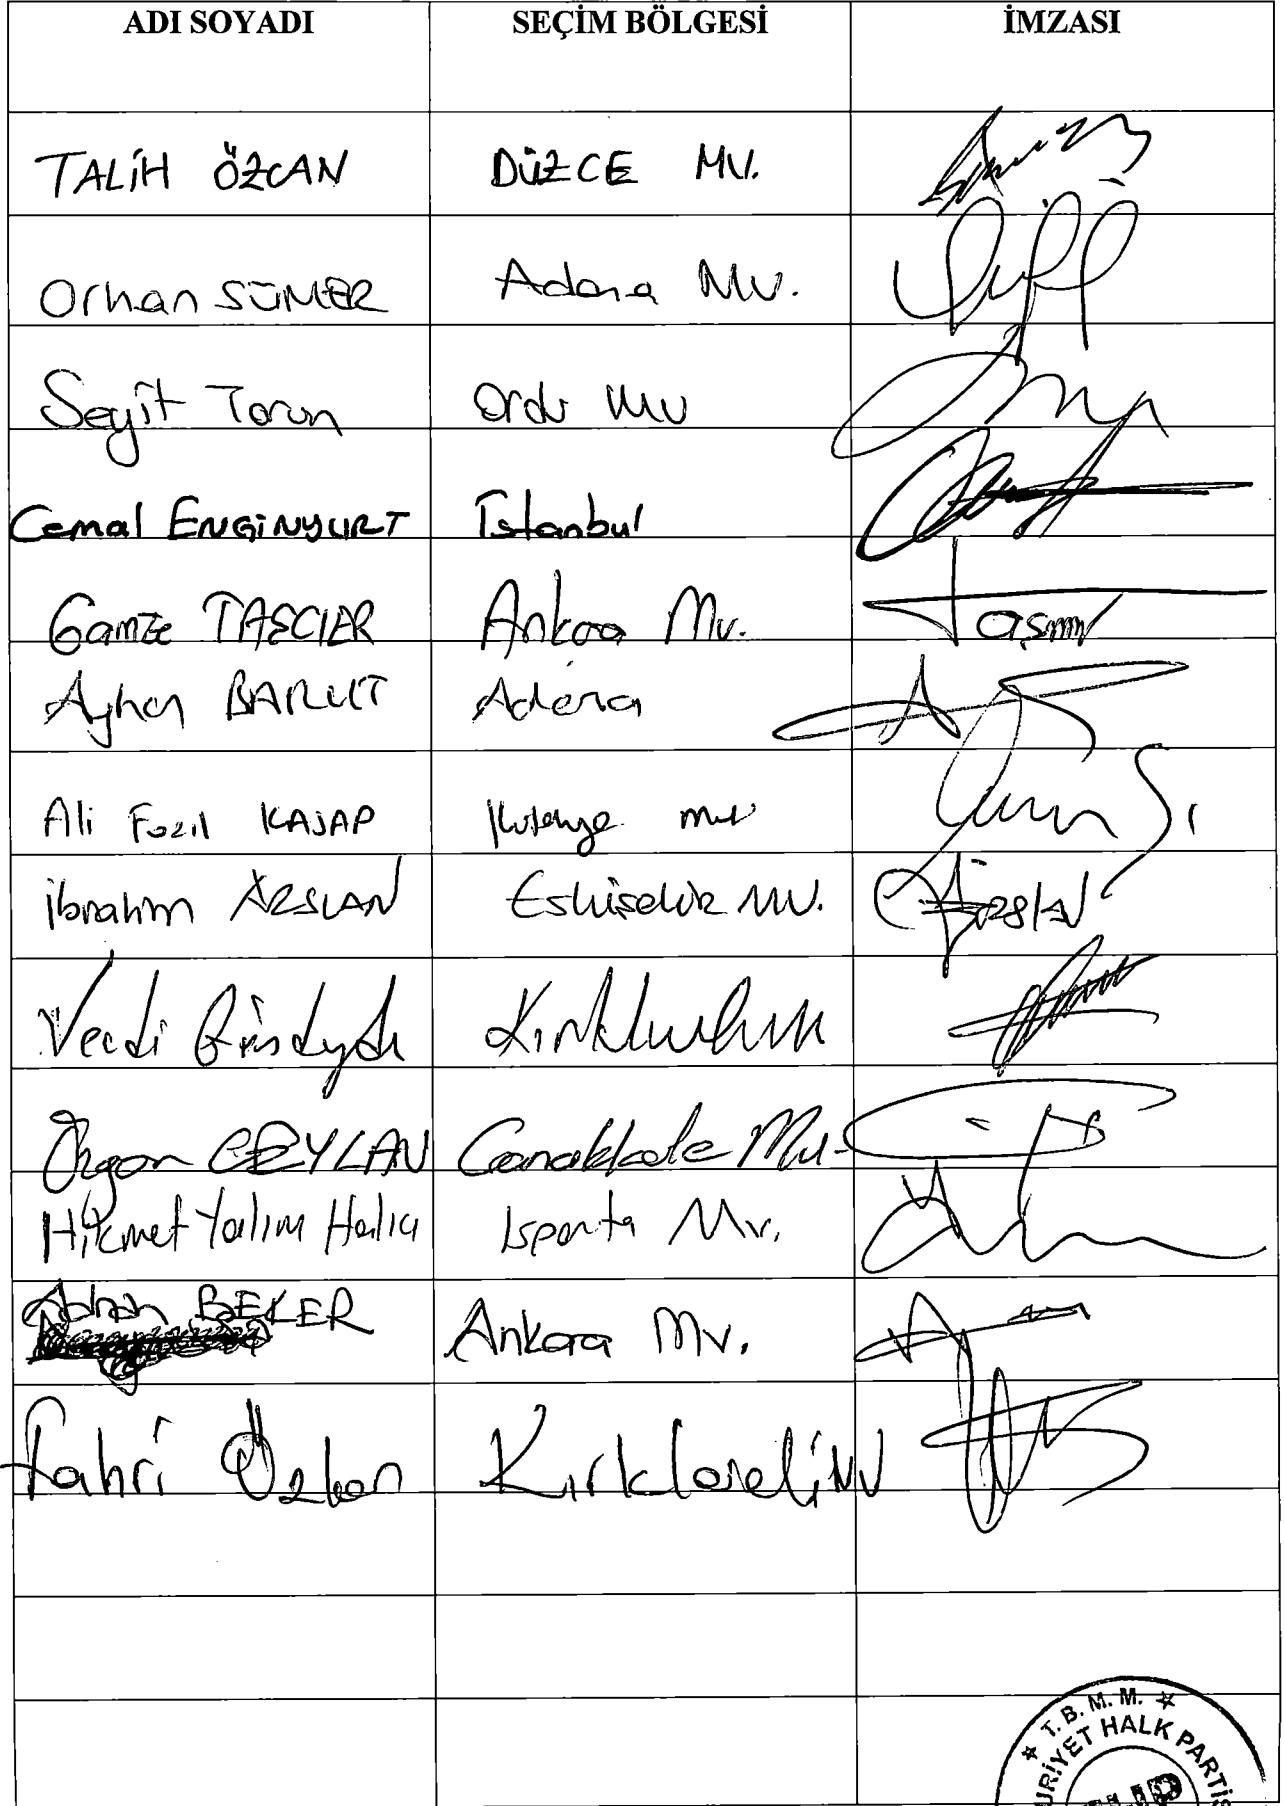 ADI SOYADI SEÇİM BÖLGESİ İMZASI
TALİH ÖZCAN DÜZCE MV.
Orhan SÜMER Adana MV.
Seyit Torun Ordu MV
Cemal ENGİNYURT İstanbul
Gamze TAŞCIER Ankara Mv. Taşcıer
Ayhan BARUT Adana
Ali Fazıl KASAP Kütahya mv
İbrahim ARSLAN Eskişehir MV. Arslan
Vecdi Gündoğdu Kırklareli
Özgür CEYLAN Çanakkale Mv.
Hikmet Yalım Halıcı Isparta Mv.
Adnan BEKER Ankara Mv.
Fahri Özkan Kırklareli MV
T.B.M.M.
URİYET HALK PARTİS